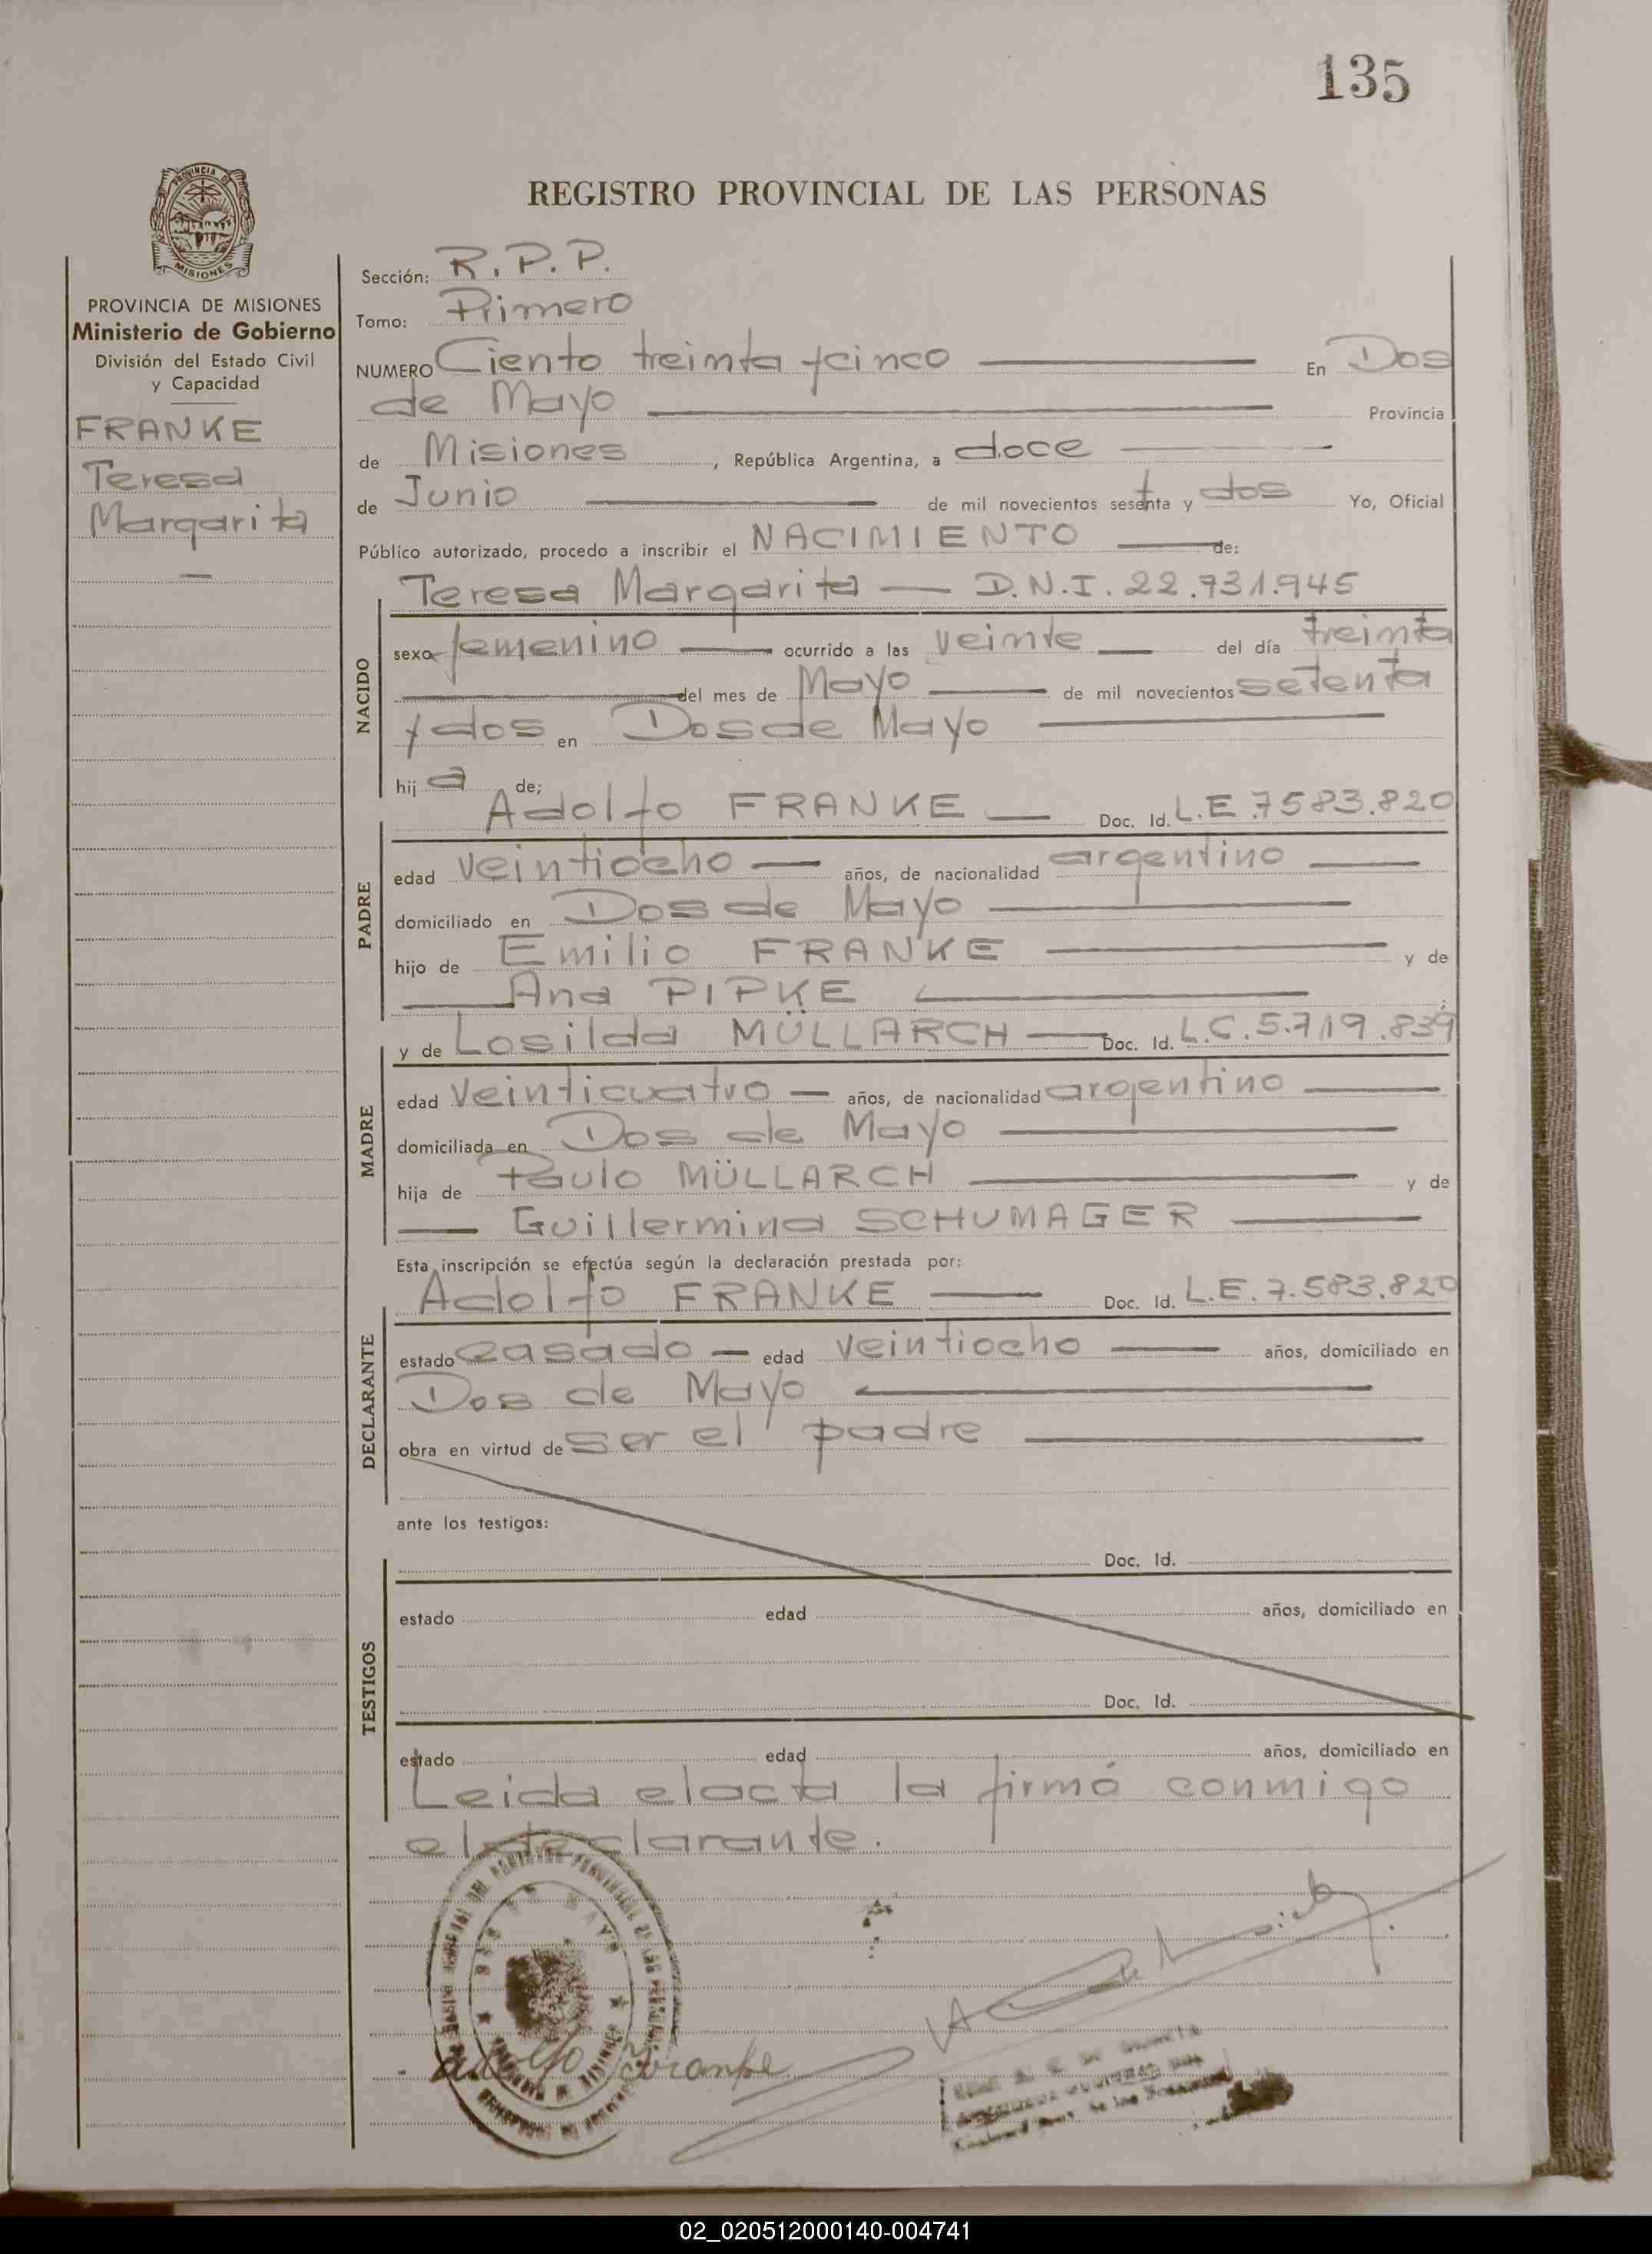 135
REGISTRO PROVINCIAL DE LAS PERSONAS
PROVINCIA DE MISIONES
Ministerio de Gobierno
División del Estado Civil
y Capacidad
FRANKE
Teresa
Margarita
Sección: R.P.P.
Tomo: Primero
NUMERO Ciento treinta y cinco En Dos
de Mayo Provincia
de Misiones, República Argentina, a doce
de Junio de mil novecientos sesenta y dos Yo, Oficial
Público autorizado, procedo a inscribir el NACIMIENTO de:
Teresa Margarita — D.N.I. 22.731.945
NACIDO
sexo femenino ocurrido a las veinte del día treinta
del mes de Mayo de mil novecientos setenta
y dos en Dos de Mayo
hija de;
PADRE
Adolfo FRANKE Doc. Id. L.E.7583.820
edad veintiocho años, de nacionalidad argentino
domiciliado en Dos de Mayo
hijo de Emilio FRANKE y de
Ana PIPKE
MADRE
y de Losilda MÜLLARCH Doc. Id. L.C.5.719.839
edad veinticuatro años, de nacionalidad argentino
domiciliada en Dos de Mayo
hija de Paulo MÜLLARCH y de
Guillermina SCHUMAGER
Esta inscripción se efectúa según la declaración prestada por:
DECLARANTE
Adolfo FRANKE Doc. Id. L.E.7.583.820
estado casado edad veintiocho años, domiciliado en
Dos de Mayo
obra en virtud de ser el padre
ante los testigos:
TESTIGOS
Doc. Id.
estado edad años, domiciliado en
Doc. Id.
estado edad años, domiciliado en
Leida el acta la firmó conmigo
el declarante.
Adolfo Franke
02_020512000140-004741